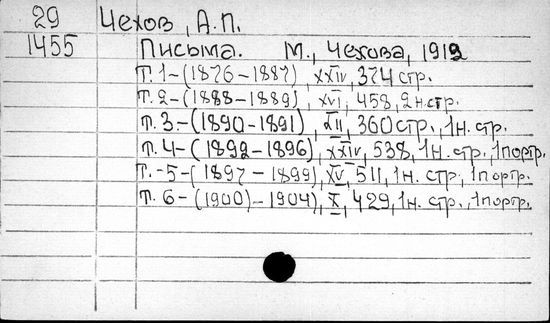 29 Чехов, А.П.
1455 Письма. М., Чехова, 1912
Т. 1-(1876-1887), XXIV, 374 стр.
Т. 2-(1888-1889), XVI, 458, 2н.стр.
Т. 3.-(1890-1891), XII, 360 стр., 1н. стр.
Т. 4-(1892-1896), XXIV, 538, 1н. стр., 1портр.
Т.-5-(1897-1899), XV, 511, 1н. стр., 1портр.
Т. 6-(1900)-1904), X, 429, 1н. стр., 1портр.